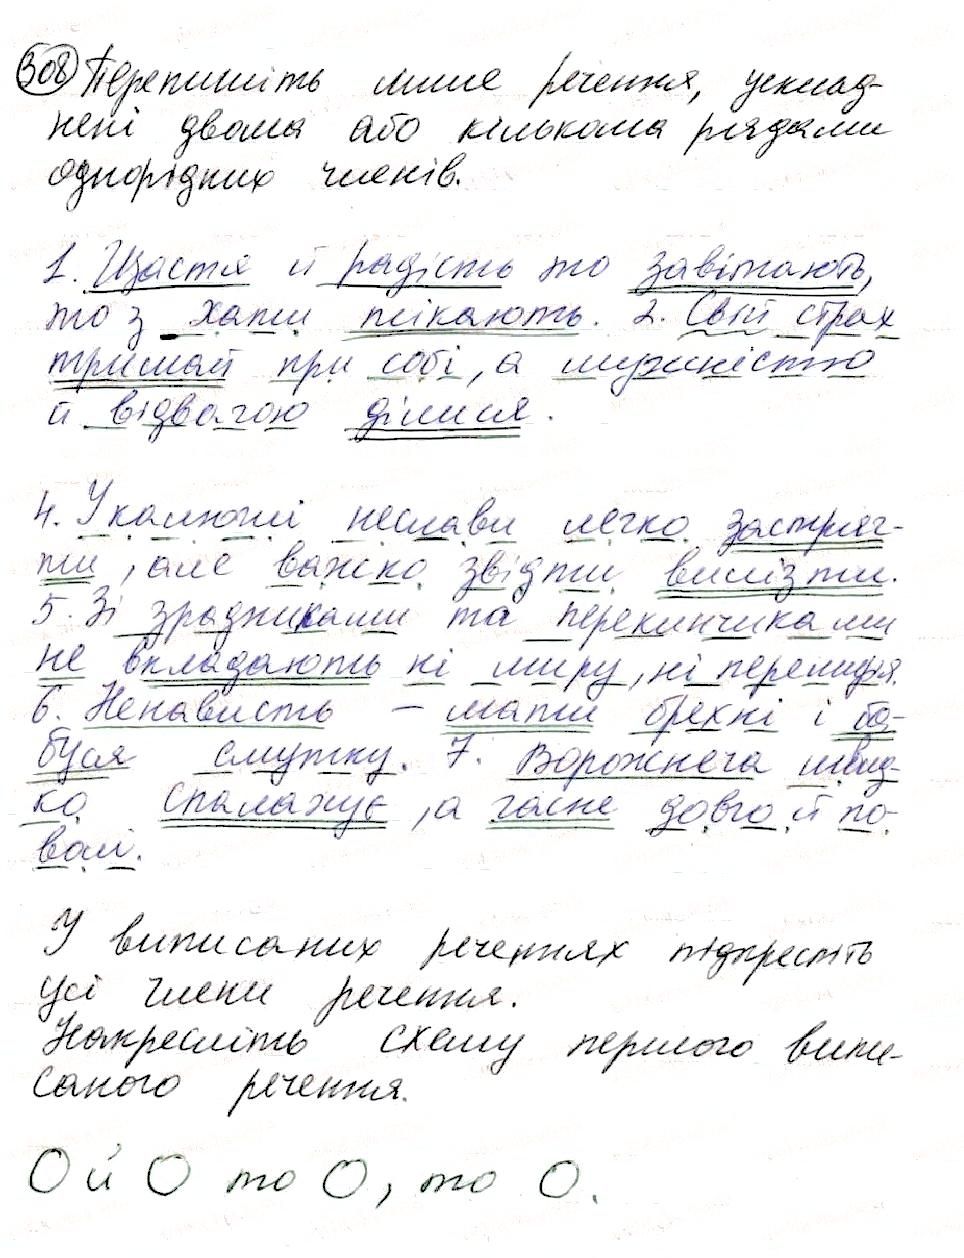 308 Перепишіть лише речення, усклад-
нені двома або кількома рядами
однорідних членів.
1. Щастя й радість то завітають,
то з хати тікають. 2. Свій страх
тримай при собі, а мужністю
й відвагою ділися.
4. У калюжі неслави легко застряг-
ти, але важко звідти вилізти.
5. Зі зрадниками та перекинчиками
не вкладають ні миру, ні перемир'я.
6. Ненависть – мати брехні і ба-
буся смутку. 7. Ворожнеча швид-
ко спалахує, а гасне довго й по-
волі.
У виписаних реченнях підкресліть
усі члени речення.
Накресліть схему першого випи-
саного речення.
О й О то О, то О.